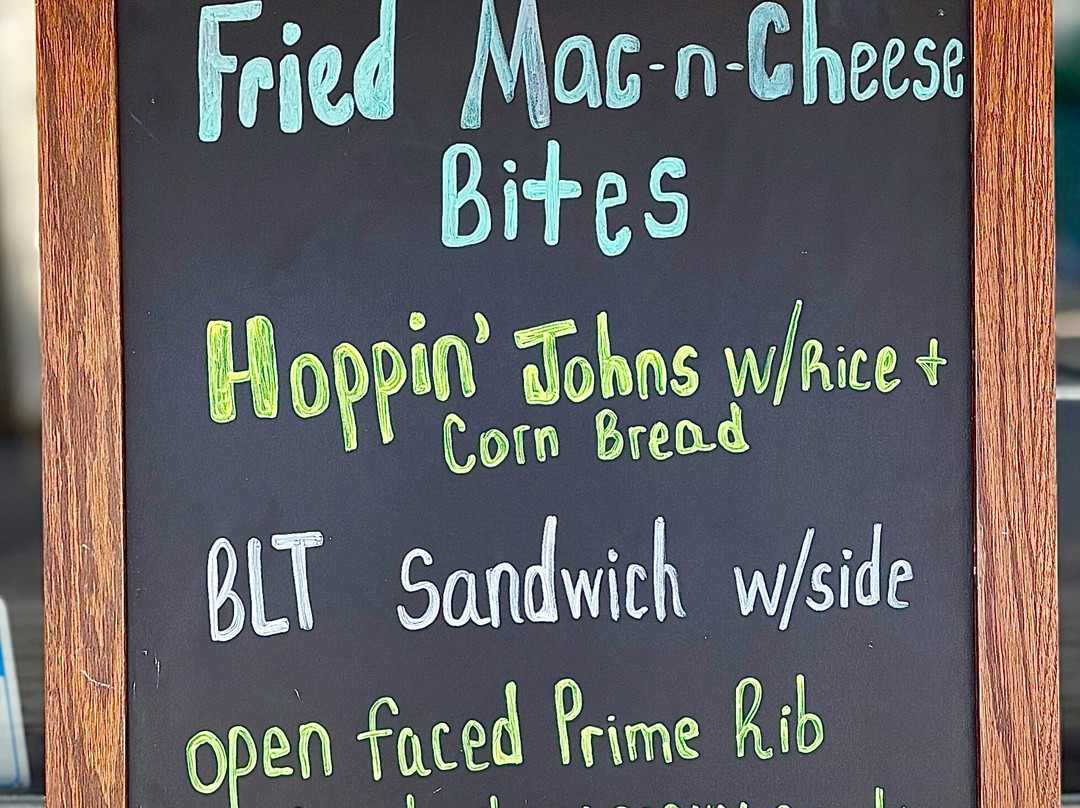 Fried Mac-n-Cheese
Bites
Hoppin' Johns w/Rice +
Corn Bread
BLT Sandwich w/side
open faced Prime Rib